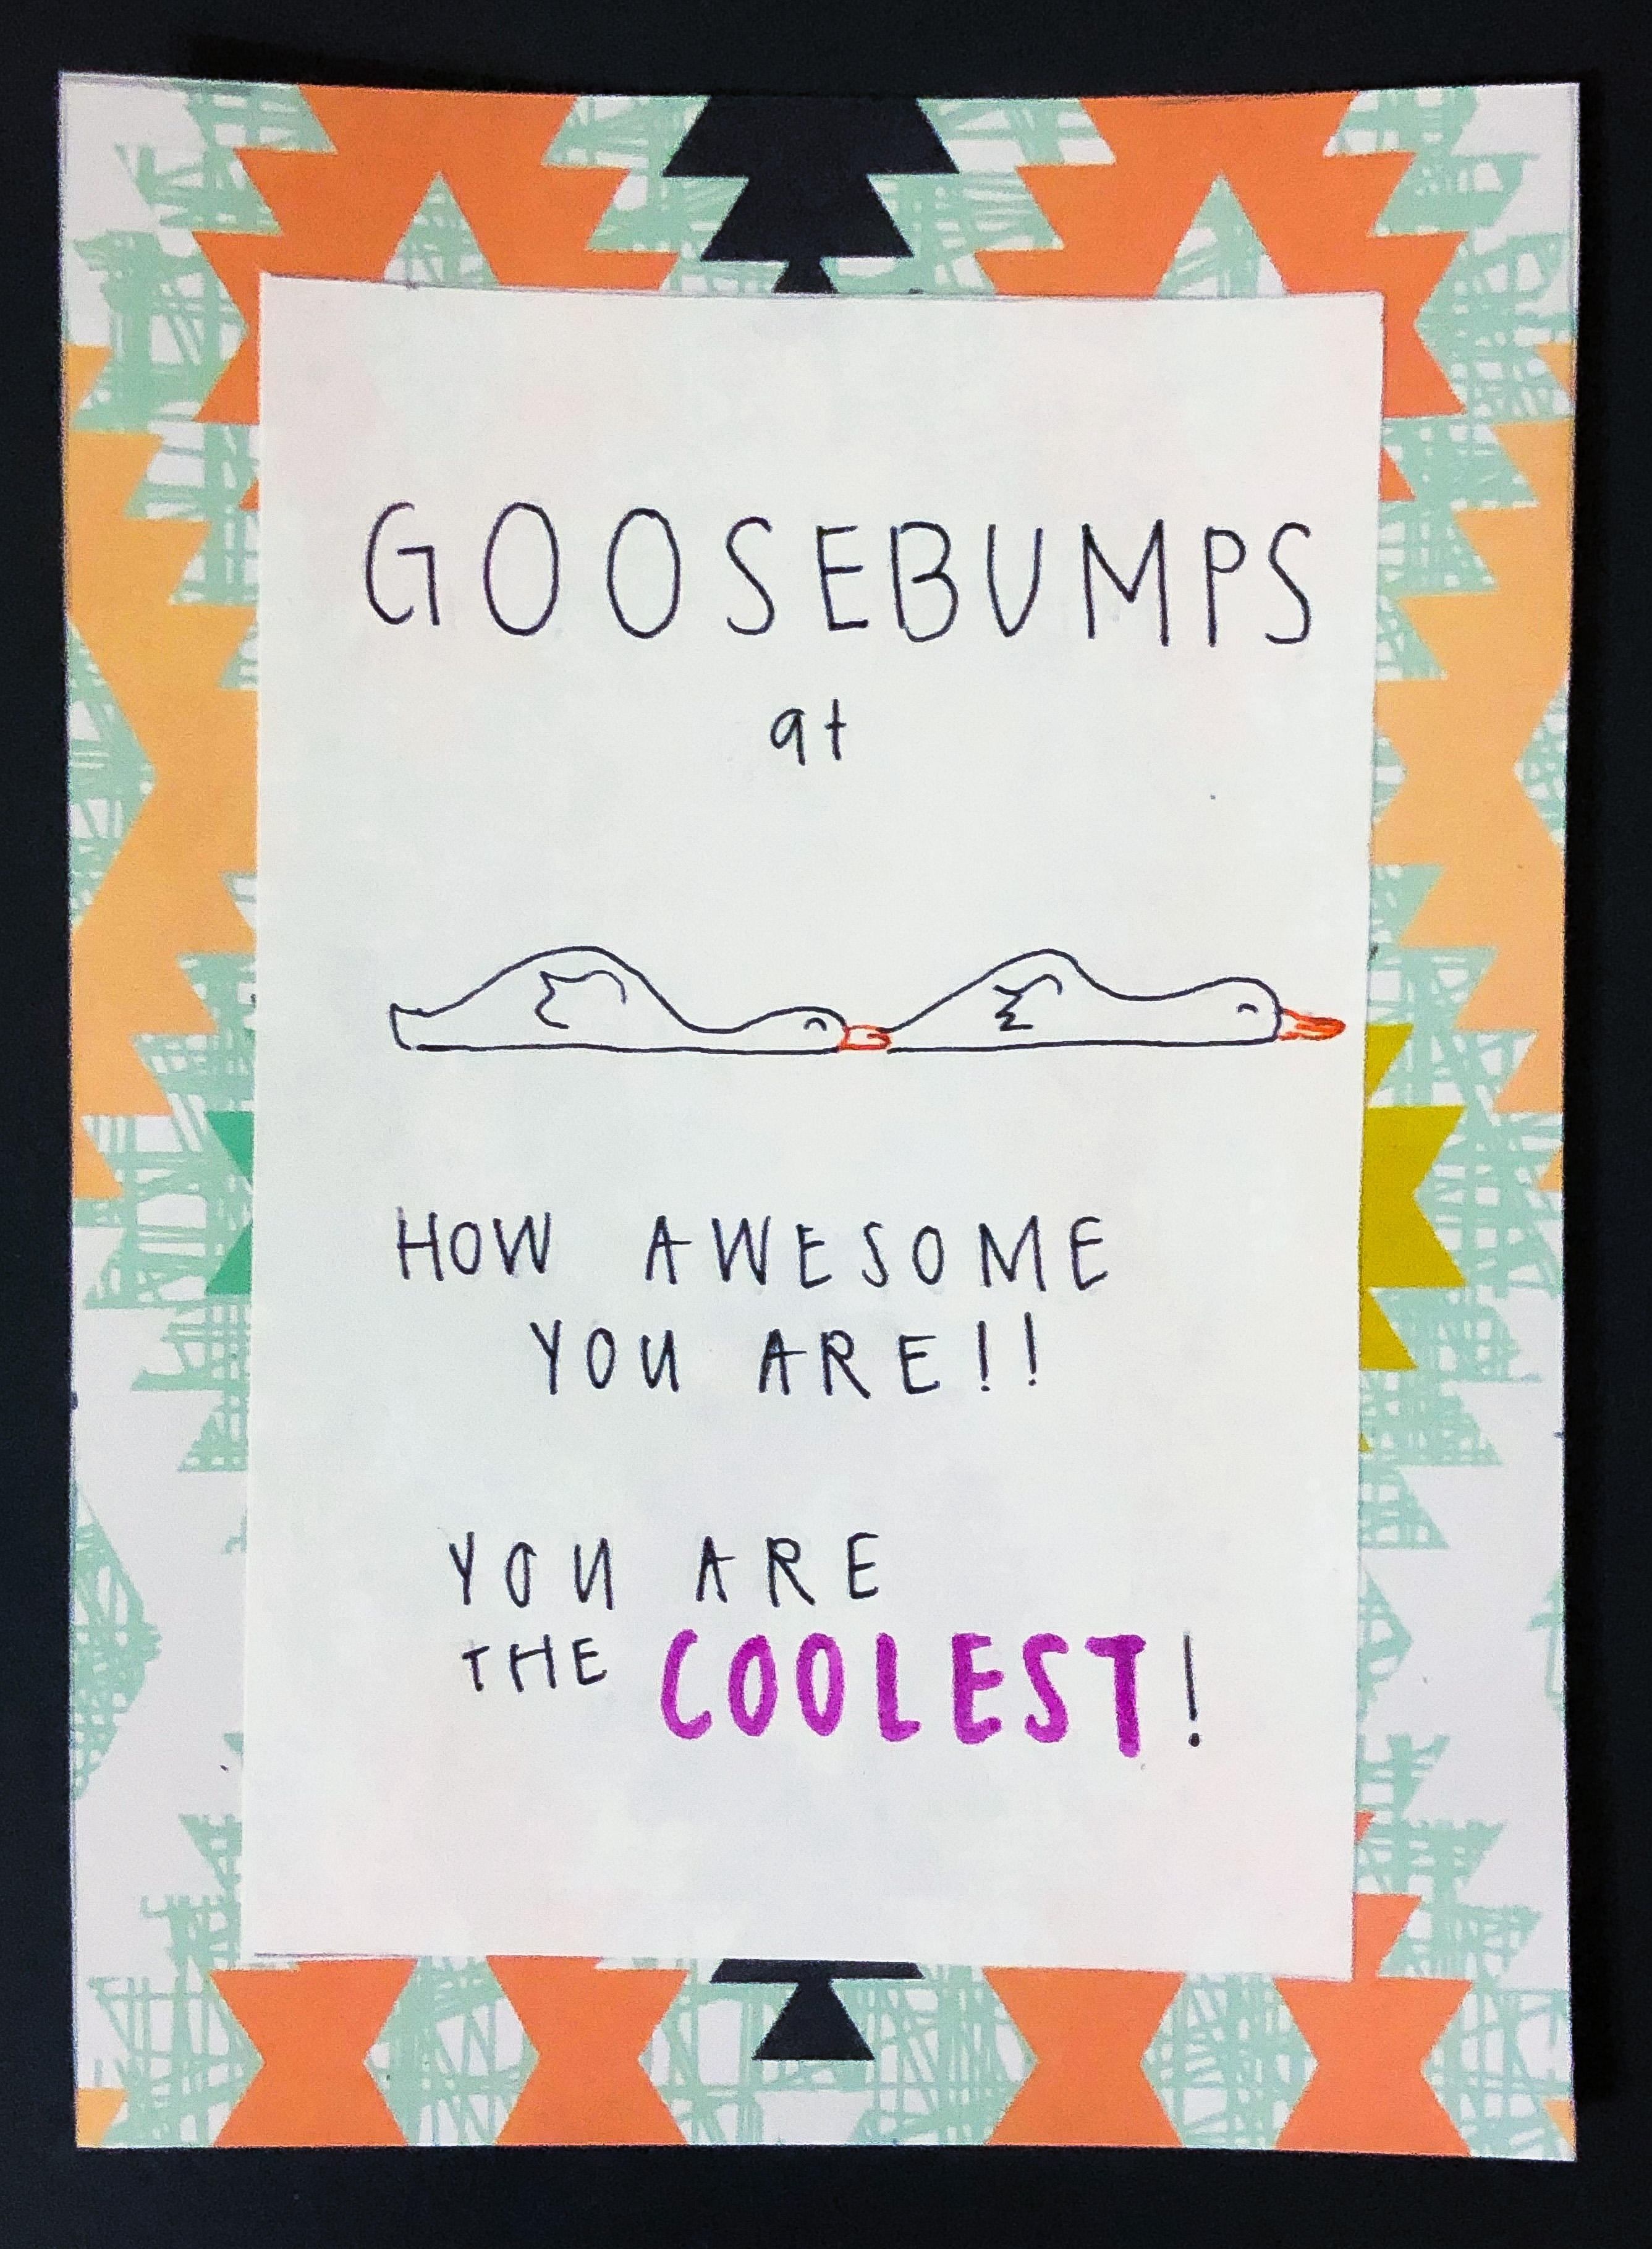 GOOSEBUMPS
at
HOW AWESOME
YOU ARE!!
YOU ARE
THE COOLEST!